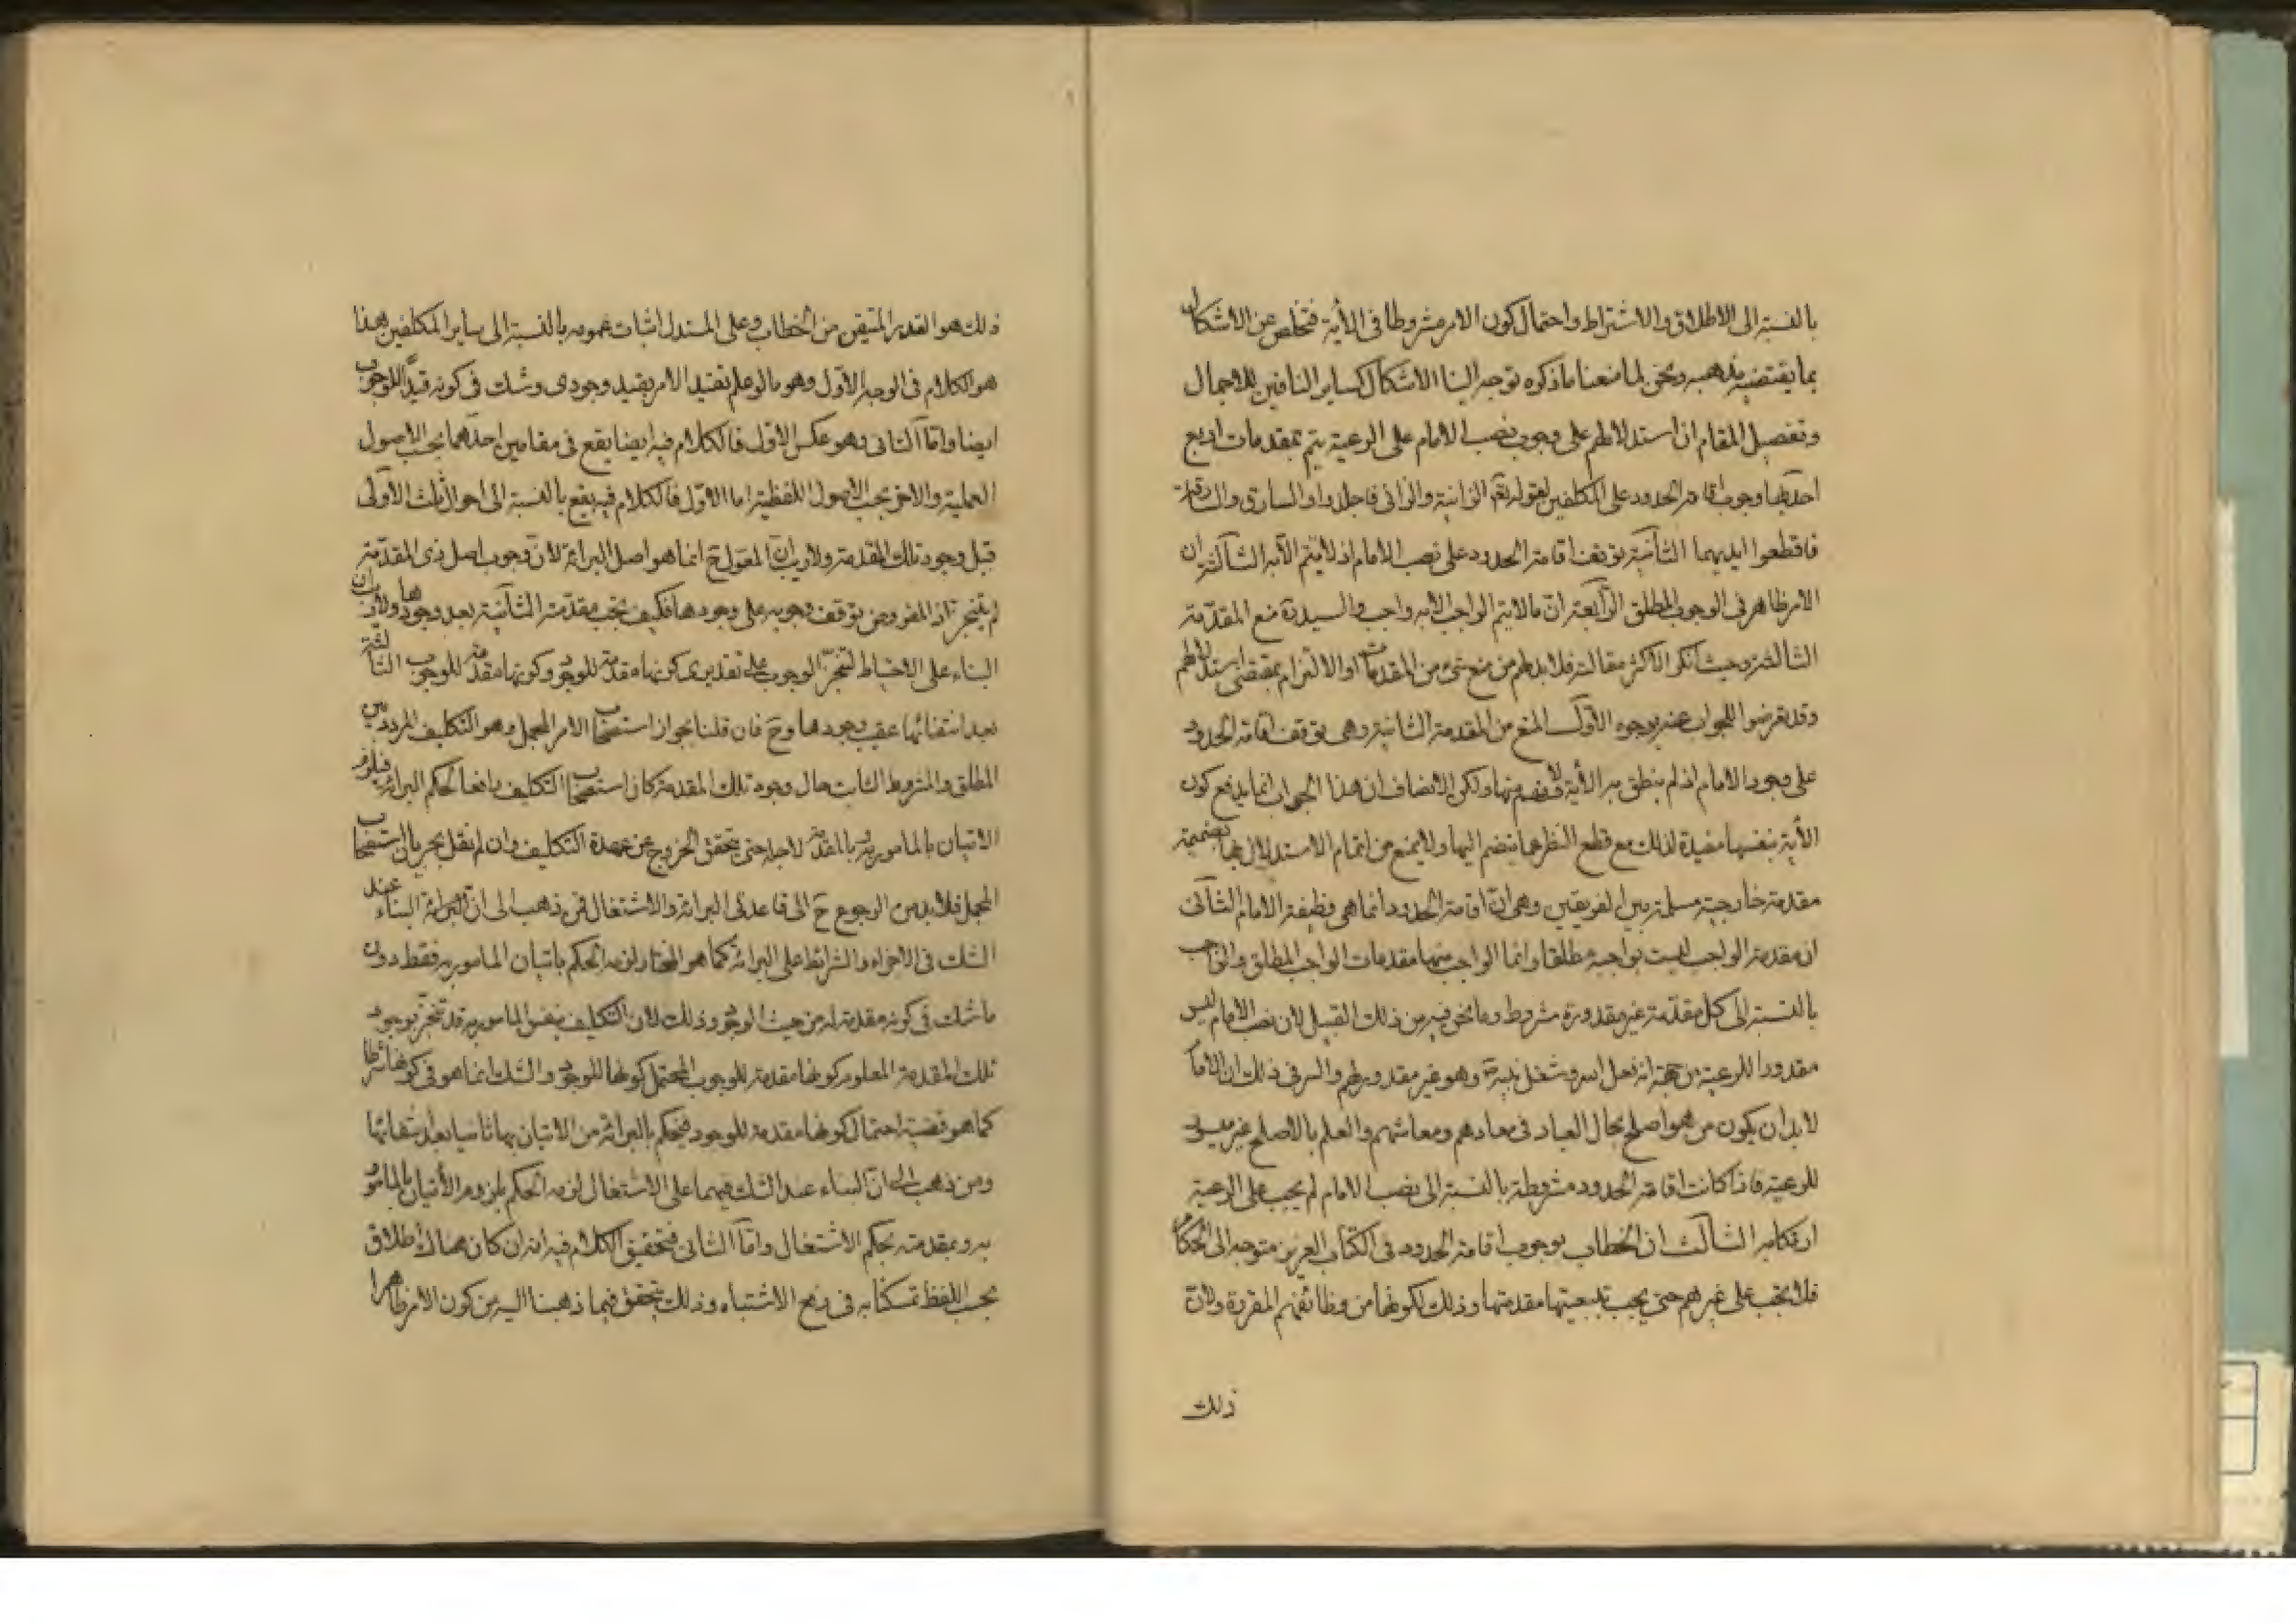 بالنسبة الى الاطلاق والاشتراط واحتمال كون الامر مشروطا فى الآية فتخلص عن الاشكال
بما يقتضيه مذهبه ونحن لما منعنا ما ذكره توجه الينا الاشكال كساير النافين للاجمال
وتفصيل المقام ان استدلالهم على وجوب نصب الامام على الرعية يتم بمقدمات اربع
احديها وجوب اقامة الحدود على المكلفين لقوله تعم الزانية والزانى فاجلدوا والسارق والسارقة
فاقطعوا ايديهما الثانية توقف اقامة الحدود على نصب الامام اذ لا يتم الا به الثالثة ان
الامر ظاهر فى الوجوب المطلق الرابعة ان ما لا يتم الواجب الا به واجب والسيد ره منع المقدمة
الثالثة وحيث انكر الاكثر مقالته فلا بد لهم من منع شىء من المقدمات او الالتزام بمقتضى استدلالهم
وقد تعرضوا للجواب عنه بوجوه الاول المنع من المقدمة الثانية وهى توقف اقامة الحدود
على وجود الامام اذ لم ينطق به الآية ولا يفهم منها ولكن الانصاف ان هذا الجواب انما يدفع كون
الآية بنفسها مفيدة لذلك مع قطع النظر عما ينضم اليها ولا يمنع من اتمام الاستدلال بها بضميمة
مقدمة خارجية مسلمة بين الفريقين وهى ان اقامة الحدود انما هى وظيفة الامام الثانى
ان مقدمة الواجب ليست بواجبة مطلقا وانما الواجب منها مقدمات الواجب المطلق والواجب
بالنسبة الى كل مقدمة غير مقدورة مشروط وما نحن فيه من ذلك القبيل لان نصب الامام ليس
مقدورا للرعية من جهة انه فعل الله وشغل نبيه ص وهو غير مقدور لهم والسر فى ذلك ان الامام
لا بد ان يكون من هو اصلح بحال العباد فى معادهم ومعاشهم والعلم بالاصلح غير ميسور
للرعية فاذا كانت اقامة الحدود مشروطة بالنسبة الى نصب الامام لم يجب على الرعية
ارتكابه الثالث ان الخطاب بوجوب اقامة الحدود فى الكتاب العزيز متوجه الى الحكام
فلا تجب على غيرهم حتى يجب بتبعيتها مقدمتها وذلك لكونها من وظائفهم المقررة ولان
ذلك
ذلك هو القدر المتيقن من الخطاب وعلى المستدل اثبات عمومه بالنسبة الى ساير المكلفين هذا
هو الكلام فى الوجه الاول وهو ما لو علم تقييد الامر بقيد وجودى وشك فى كونه قيدا للوجوب
ايضا واما الثانى وهو عكس الاول فالكلام فيه ايضا يقع فى مقامين احدهما بحسب الاصول
العملية والاخر بحسب الاصول اللفظية اما الاول فالكلام فيه يقع بالنسبة الى احوال ثلث الاولى
قبل وجود تلك المقدمة ولا ريب ان المعول ح انما هو اصل البرائة لان وجوب اصل ذى المقدمة
لم يتنجز اذ المفروض توقف وجوبه على وجودها فكيف تجب مقدمته الثانية بعد وجودها ولا ريب ان
البناء على الاحتياط لتنجز الوجوب على تقديرى كونها مقدمة للوجود وكونها مقدمة للوجوب الثالثة
بعد انتفائها عقيب وجودها وح فان قلنا بجواز استصحاب الامر المجمل وهو التكليف المردد بين
المطلق والمشروط الثابت حال وجود تلك المقدمة كان استصحاب التكليف رافعا لحكم البرائة فيلزم
الاتيان بالمامور به وبالمقدمة لاجله حتى يتحقق الخروج عن عهدة التكليف وان لم نقل بجريان استصحاب
المجمل فلا بد من الرجوع ح الى قاعدتى البرائة والاشتغال فمن ذهب الى ان البرائة البناء عند
الشك فى الاجزاء والشرائط على البرائة كما هو المختار لزمه الحكم باتيان المامور به فقط دون
ما شك فى كونه مقدمة له من حيث الوجود وذلك لان التكليف بنفس المامور به قد تنجز بوجود
تلك المقدمة المعلوم كونها مقدمة للوجوب المحتمل كونها للوجود والشك انما هو فى كونها شرطا
كما هو قضية احتمال كونها مقدمة للوجود فيحكم بالبرائة من الاتيان بها ثانيا بعد انتفائها
ومن ذهب الى ان البناء عند الشك فيهما على الاشتغال لزمه الحكم بلزوم الاتيان بالمامور
به وبمقدمته بحكم الاشتغال واما الثانى فتحقيق الكلام فيه انه ان كان هناك اطلاق
بحسب اللفظ تمسكنا به فى رفع الاشتباه وذلك يتحقق فيما ذهبنا اليه من كون الامر ظاهرا